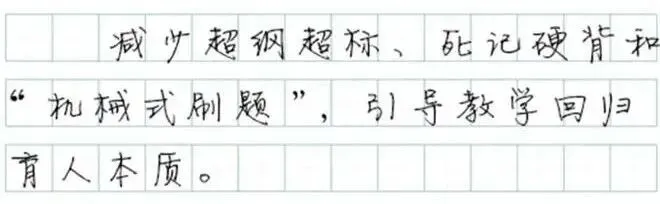 减少超纲超标、死记硬背和
“机械式刷题”，引导教学回归
育人本质。